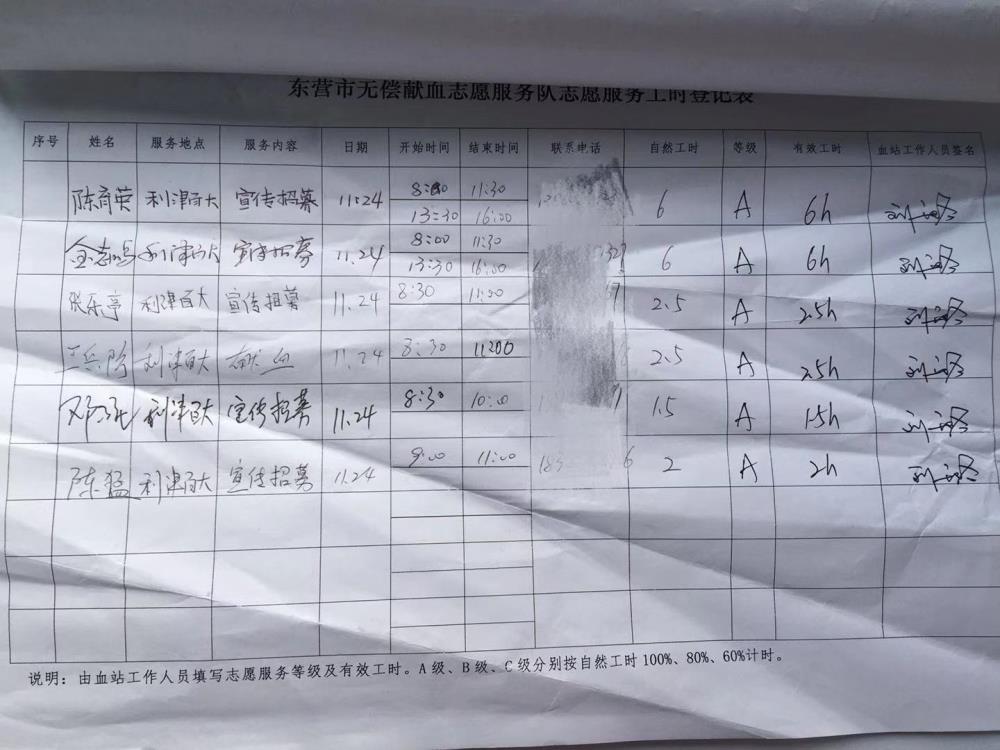 东营市无偿献血志愿服务队志愿服务工时登记表
序号 姓名 服务地点 服务内容 日期 开始时间 结束时间 联系电话 自然工时 等级 有效工时 血站工作人员签名
陈育英 利津百大 宣传招募 11.24 8:30 11:30 6 A 6h
13:30 16:00
金志 利津百大 宣传招募 11.24 8:00 11:30 6 A 6h
13:30 16:00
张乐亭 利津百大 宣传招募 11.24 8:30 11:00 2.5 A 2.5h
利津百大 献血 11.24 8:30 11:00 2.5 A 2.5h
利津百大 宣传招募 11.24 8:30 10:00 1.5 A 1.5h
陈猛 利津百大 宣传招募 11.24 9:00 11:00 2 A 2h
说明：由血站工作人员填写志愿服务等级及有效工时。A级、B级、C级分别按自然工时100%、80%、60%计时。